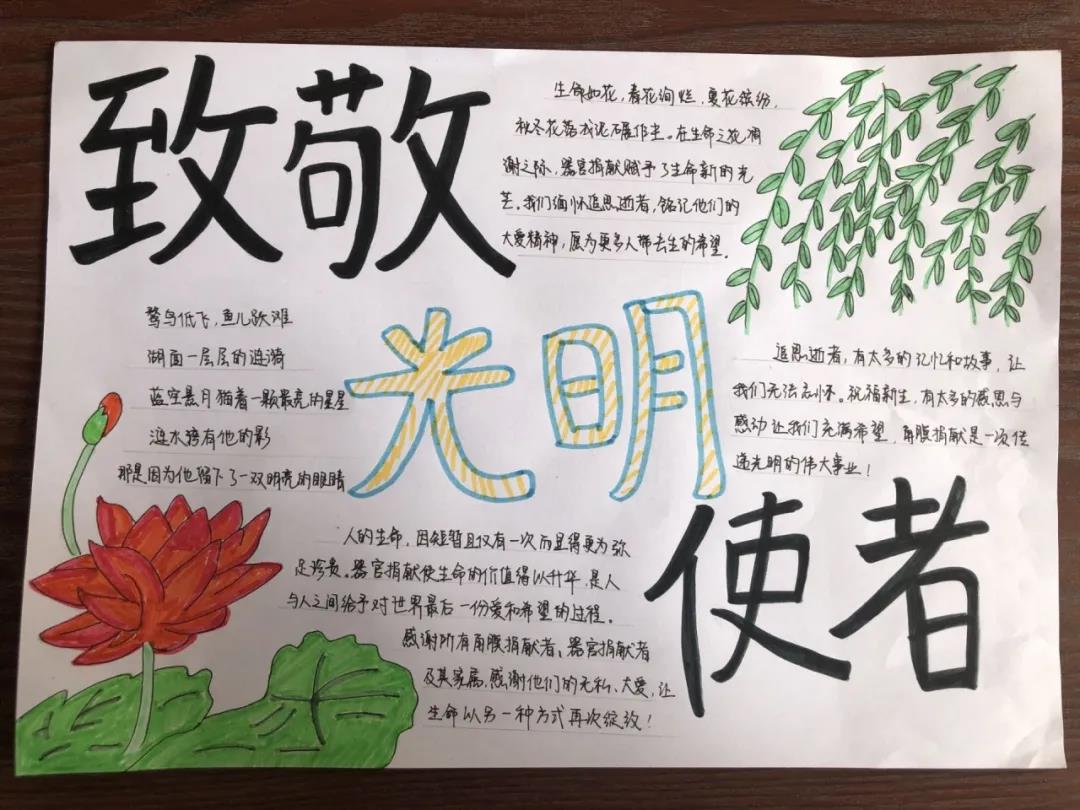 致敬
生命如花，春花绚烂，夏花缤纷，
秋冬花落成泥碾作尘。在生命之花凋
谢之际，器官捐献赋予了生命新的光
芒。我们缅怀追思逝者，铭记他们的
大爱精神，愿为更多人带去生的希望。
光明
鹭鸟低飞，鱼儿跃滩
湖面一层层的涟漪
蓝空悬月猫着一颗最亮的星星
涟水湾有他的影
那是因为他留下了一双明亮的眼睛
追思逝者，有太多的记忆和故事，让
我们无法忘怀。祝福新生，有太多的感恩与
感动让我们充满希望，角膜捐献是一项传
递光明的伟大事业！
使者
人的生命，因短暂且仅有一次而显得更为弥
足珍贵。器官捐献使生命的价值得以升华，是人
与人之间给予对世界最后一份爱和希望的过程。
感谢所有角膜捐献者、器官捐献者
及其家属，感谢他们的无私、大爱，让
生命以另一种方式再次绽放！